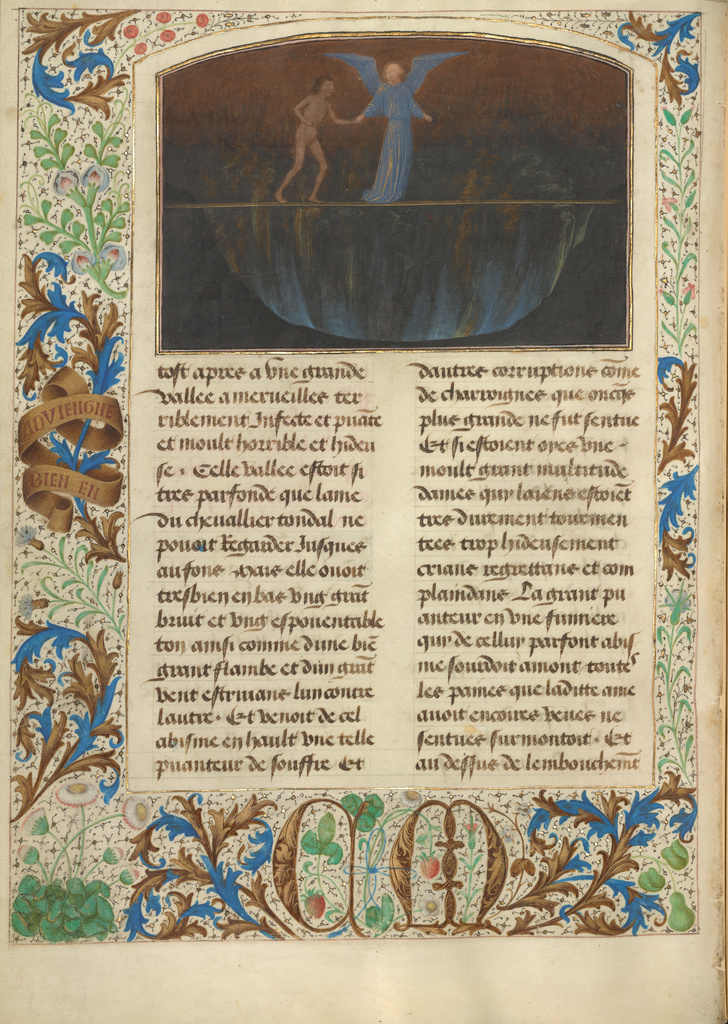 JOUIENGNE
BIEN EN
tost apres a vne grande
vallee a merueilles ter
riblement Infecte et puāte
et moult horrible et hideu
se . Celle vallee estoit si
tres parfonde que lame
du cheuallier tondal ne
pouoit Regarder Jusques
au fons . Mais elle ouoit
tresbien en bas vng grāt
bruit et vng espouentable
ton ainsi comme dune biē
grant flambe et dun grāt
vent estriuans lun contre
lautre . Et venoit de cel
abisme en hault vne telle
puanteur de souffre Et
dautres corruptions cōme
de charoignes que oncqs
plus grande ne fut sentue
Et si estoient oyes vne
moult grant multitude
dames qui laiens estoiēt
tres durement tourmen
tees trop hideusement
crians regrettans et com
plaindans . La grant pu
anteur en vne fumiere
qui de cellui parfont abis
me sourdoit amont toutes
les paines que laditte ame
auoit encoires veues ne
senties surmontoit . Et
au dessus de lembouchemt
C M